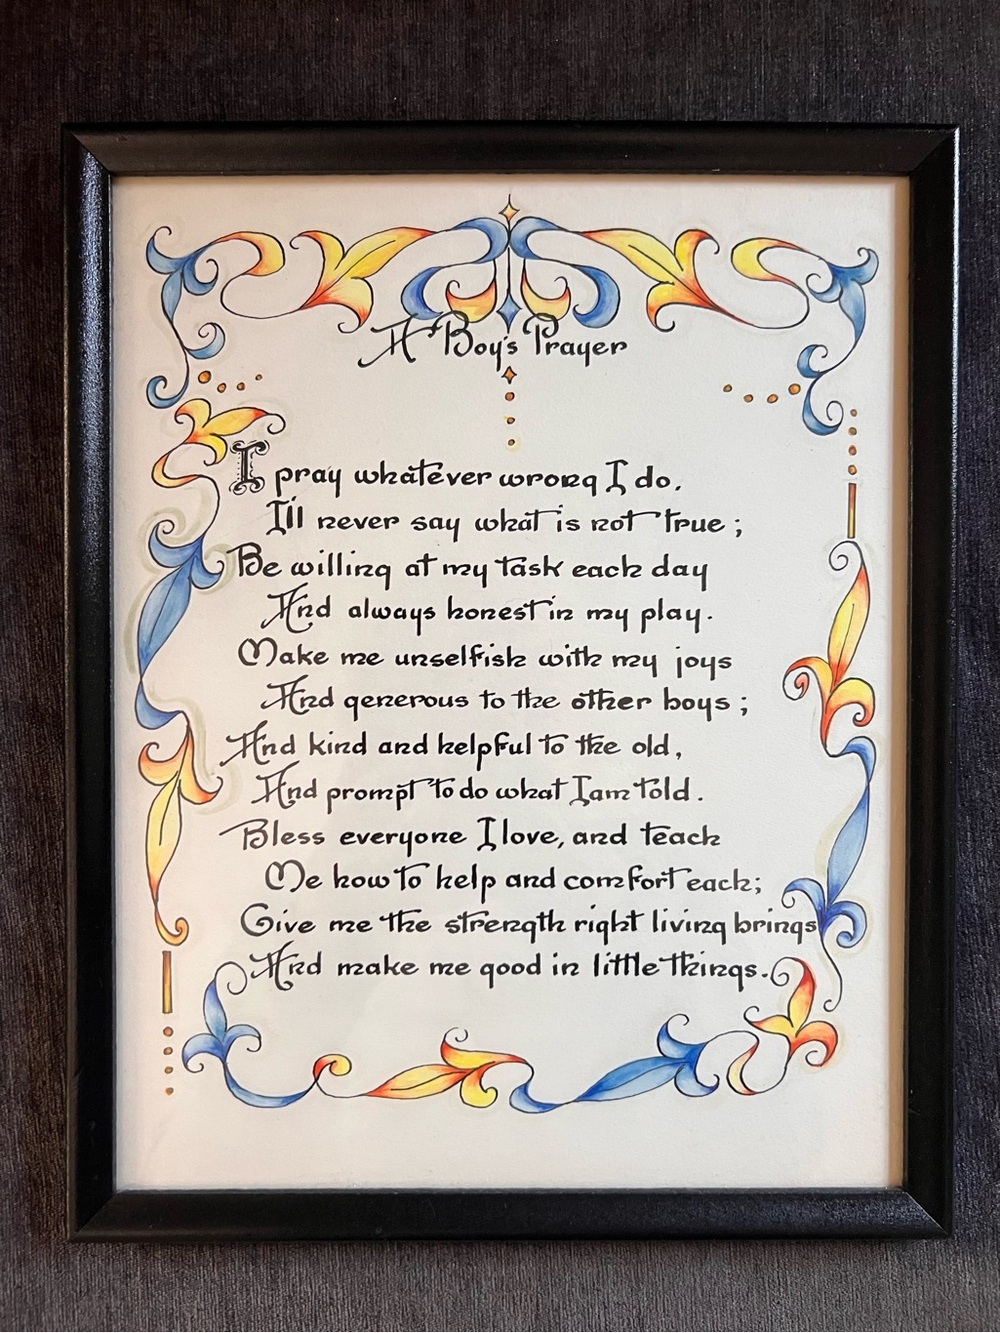 A Boy's Prayer
I pray whatever wrong I do,
I'll never say what is not true;
Be willing at my task each day
And always honest in my play.
Make me unselfish with my joys
And generous to the other boys;
And kind and helpful to the old,
And prompt to do what I am told.
Bless everyone I love, and teach
Me how to help and comfort each;
Give me the strength right living brings
And make me good in little things.